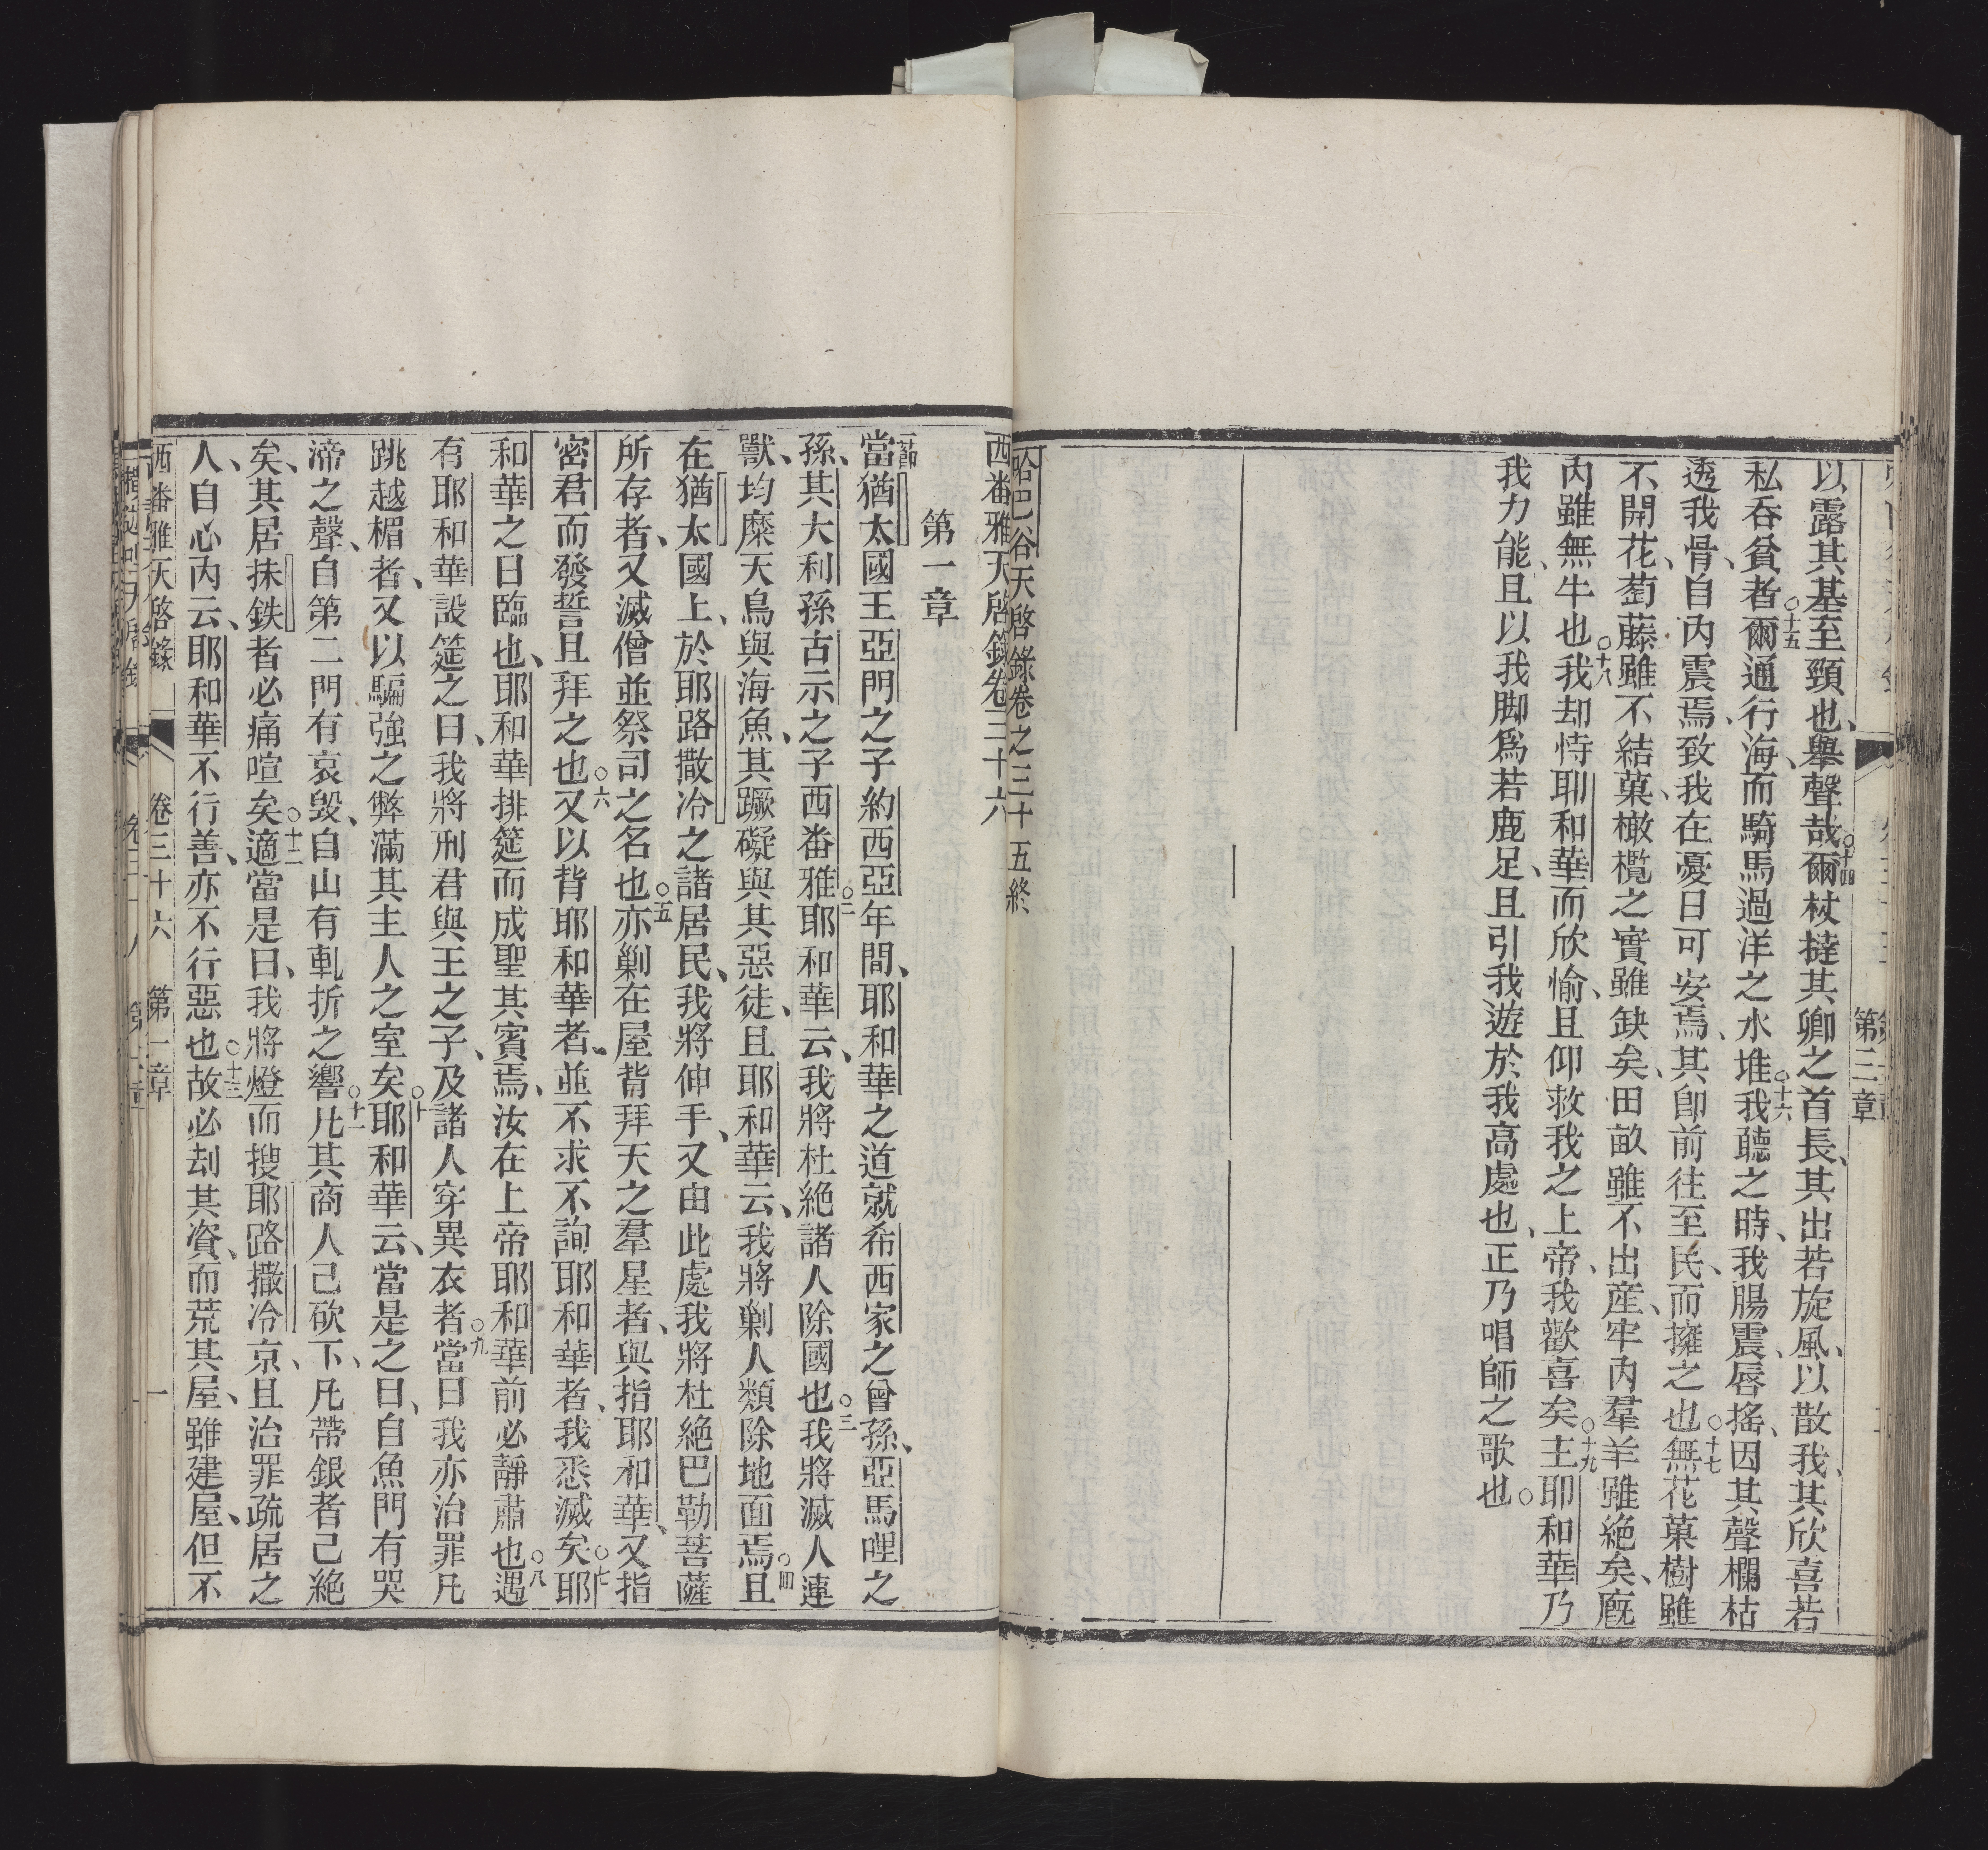 第三章
以露其基至頸也、舉聲哉○十四爾杖撻其卿之首長、其出若旋風、以散我、其欣喜若
私吞貧者○十五爾通行海、而騎馬過洋之水堆○十六我聽之時、我腸震、唇搖、因其聲欄枯
透我骨、自內震焉、致我在憂日可安焉、其卽前往至民、而擁之也○十七無花菓樹雖
不開花、萄藤雖不結菓、橄欖之實雖缺矣、田畝雖不出産、牢內羣羊雖絕矣、廐
內雖無牛也○十八我却恃耶和華而欣愉、且仰救我之上帝、我歡喜矣○十九主耶和華乃
我力能、且以我脚爲若鹿足、且引我遊於我高處也、正乃唱師之歌也○
哈巴谷天啓錄卷之三十五終
西番雅天啓錄卷三十六
第一章
節
當猶太國王亞門之子約西亞年間、耶和華之道就希西家之曾孫、亞馬哩之
孫、其大利孫古示之子西番雅○二耶和華云、我將杜絕諸人除國也○三我將滅人連
獸、均糜天鳥與海魚、其蹶礙與其惡徒、且耶和華云、我將剿人類除地面焉○四且
在猶太國上、於耶路撒冷之諸居民、我將伸手、又由此處我將杜絕巴勒菩薩
所存者、又滅僧並祭司之名也○五亦剿在屋背拜天之羣星者、與指耶和華、又指
密君而發誓且拜之也○六又以背耶和華者、並不求不詢耶和華者、我悉滅矣○七耶
和華之日臨也、耶和華排筵而成聖其賓焉、汝在上帝耶和華前必靜肅也○八遇
有耶和華設筵之日、我將刑君與王之子、及諸人穿異衣者○九當日我亦治罪凡
跳越楣者、又以騙強之弊滿其主人之室矣○十耶和華云、當是之日、自魚門有哭
渧之聲、自第二門有哀毀、自山有軋折之響○十一凡其商人已砍下、凡帶銀者已絕
矣、其居抹鉄者必痛喧矣○十二適當是日、我將燈而搜耶路撒冷京、且治罪疏居之
人、自心內云、耶和華不行善、亦不行惡也○十三故必刦其資、而荒其屋、雖建屋、但不
西番雅天啓錄 卷三十六 第一章 一